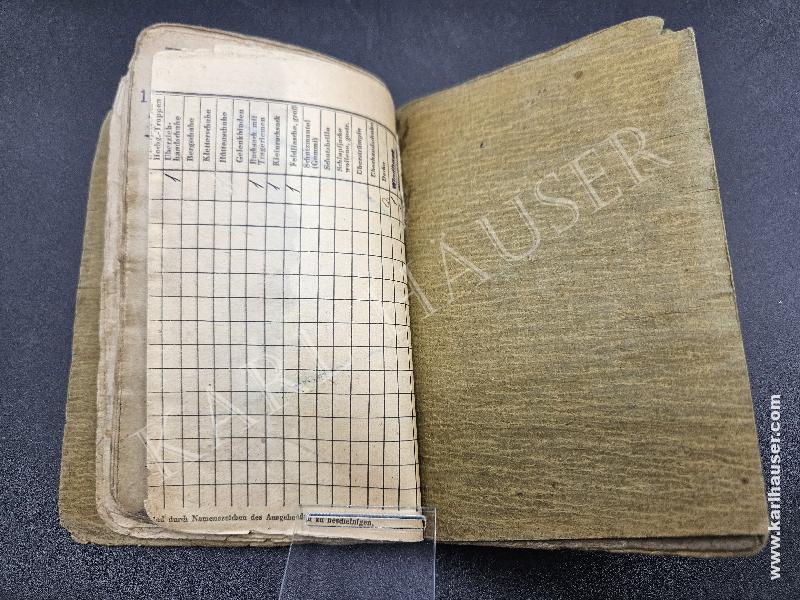 1
Hochg.-Truppen
Überzieh-
handschuhe
Bergschuhe
Kletterschuhe
Hüttenschuhe
Gelenkbinden
Rucksack mit
Trageriemen
Kletterrucksack
Feldflasche, groß
Schutzmantel
(Gummi)
Schutzbrille
Schlupfjacke
wollene, gestr.
Überstrümpfe
Überhandschuhe
Decke
1 1 1 1
2 1
sind durch Namenszeichen des Ausgebenden zu bescheinigen.
KARL HAUSER
www.karlhauser.com